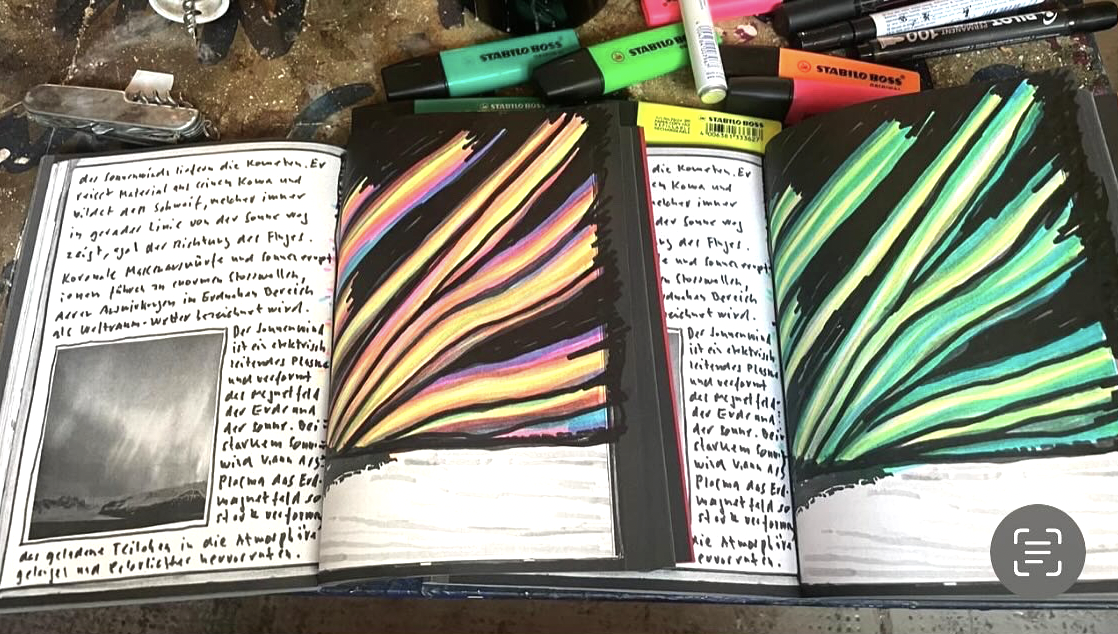 STABILO BOSS
STABILO BOSS
STABILO BOSS
ORIGINAL
PILOT
PERMANENT
100
STABILO BOSS
STABILO BOSS
4006381333627
der Sonnenwinds liefern die Kometen. Er
reisst Material aus seinen Koma und
bildet den Schweif, welcher immer
in gerader Linie von der Sonne weg
zeigt, egal der Richtung des Fluges.
Koronale Massenauswürfe und Sonnenerupt
ionen führen zu enormen Stosswellen,
deren Auswirkungen im Erdnahen Bereich
als Weltraum-Wetter bezeichnet wird.
Der Sonnenwind
ist ein elektrisch
leitendes Plasma
und verformt
das Magnetfeld
der Erde und
der Sonne. Bei
starkem Sonnen
wind kann das
Plasma das Erd-
magnetfeld so
stark verformen
das geladene Teilchen in die Atmosphäre
und Polarlichter hervorrufen.
die Kometen. Er
Koma und
welcher immer
der Sonne weg
des Fluges.
e und Sonnenerupt
Stosswellen,
Erdnahen Bereich
bezeichnet wird.
Der Sonnenwind
ist ein elektrisch
leitendes Plasma
und verformt
das Magnetfeld
der Erde und
der Sonne. Bei
starkem Sonnen
wind kann das
Plasma das Erd-
magnetfeld so
stark verformen
die Atmosphäre
ervorrufen.